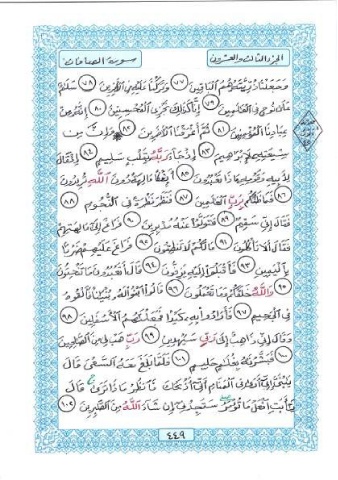 الجزء الثالث والعشرون
سورة الصافات
وَجَعَلْنَا ذُرِّيَّتَهُ هُمُ الْبَاقِينَ ٧٧ وَتَرَكْنَا عَلَيْهِ فِي الْآخِرِينَ ٧٨ سَلَٰمٌ
عَلَىٰ نُوحٍ فِي الْعَالَمِينَ ٧٩ إِنَّا كَذَٰلِكَ نَجْزِي الْمُحْسِنِينَ ٨٠ إِنَّهُ مِنْ
عِبَادِنَا الْمُؤْمِنِينَ ٨١ ثُمَّ أَغْرَقْنَا الْآخَرِينَ ٨٢ وَإِنَّ مِن
شِيعَتِهِ لَإِبْرَاهِيمَ ٨٣ إِذْ جَاءَ رَبَّهُ بِقَلْبٍ سَلِيمٍ ٨٤ إِذْ قَالَ
لِأَبِيهِ وَقَوْمِهِ مَاذَا تَعْبُدُونَ ٨٥ أَئِفْكًا آلِهَةً دُونَ اللَّهِ تُرِيدُونَ
٨٦ فَمَا ظَنُّكُم بِرَبِّ الْعَالَمِينَ ٨٧ فَنَظَرَ نَظْرَةً فِي النُّجُومِ ٨٨
فَقَالَ إِنِّي سَقِيمٌ ٨٩ فَتَوَلَّوْا عَنْهُ مُدْبِرِينَ ٩٠ فَرَاغَ إِلَىٰ آلِهَتِهِمْ
فَقَالَ أَلَا تَأْكُلُونَ ٩١ مَا لَكُمْ لَا تَنطِقُونَ ٩٢ فَرَاغَ عَلَيْهِمْ ضَرْبًا
بِالْيَمِينِ ٩٣ فَأَقْبَلُوا إِلَيْهِ يَزِفُّونَ ٩٤ قَالَ أَتَعْبُدُونَ مَا تَنْحِتُونَ
٩٥ وَاللَّهُ خَلَقَكُمْ وَمَا تَعْمَلُونَ ٩٦ قَالُوا ابْنُوا لَهُ بُنْيَانًا فَأَلْقُوهُ
فِي الْجَحِيمِ ٩٧ فَأَرَادُوا بِهِ كَيْدًا فَجَعَلْنَاهُمُ الْأَسْفَلِينَ ٩٨
وَقَالَ إِنِّي ذَاهِبٌ إِلَىٰ رَبِّي سَيَهْدِينِ ٩٩ رَبِّ هَبْ لِي مِنَ الصَّالِحِينَ
١٠٠ فَبَشَّرْنَاهُ بِغُلَامٍ حَلِيمٍ ١٠١ فَلَمَّا بَلَغَ مَعَهُ السَّعْيَ قَالَ
يَٰبُنَيَّ إِنِّي أَرَىٰ فِي الْمَنَامِ أَنِّي أَذْبَحُكَ فَانظُرْ مَاذَا تَرَىٰ قَالَ
يَٰأَبَتِ افْعَلْ مَا تُؤْمَرُ سَتَجِدُنِي إِن شَاءَ اللَّهُ مِنَ الصَّٰبِرِينَ ١٠٢
٤٤٩